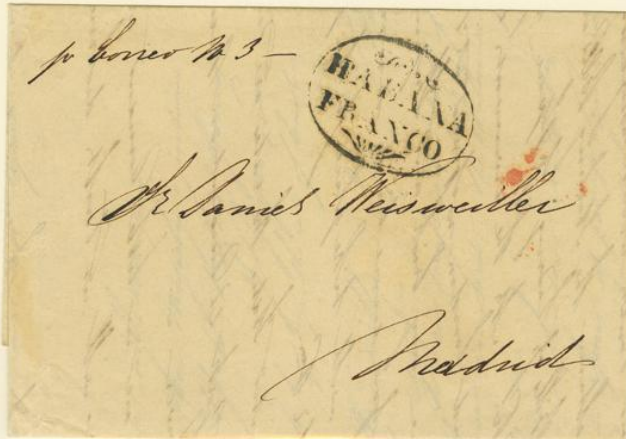 p Correo No 3 –
HABANA
FRANCO
Sr Daniel Weisweiller
Madrid